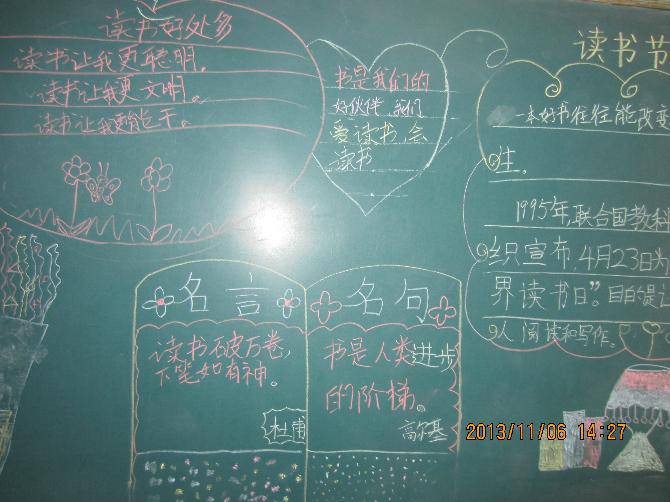 读书好处多
读书让我更聪明。
读书让我更文明。
读书让我更能干。
书是我们的
好伙伴,我们
爱读书,会
读书
读书节
一本好书往往能改变
生。
1995年,联合国教科
织宣布,4月23日为
界读书日”。目的是
人阅读和写作。
名言
读书破万卷,
下笔如有神。
杜甫
名句
书是人类进步
的阶梯。
高尔基
2013/11/06 14:27